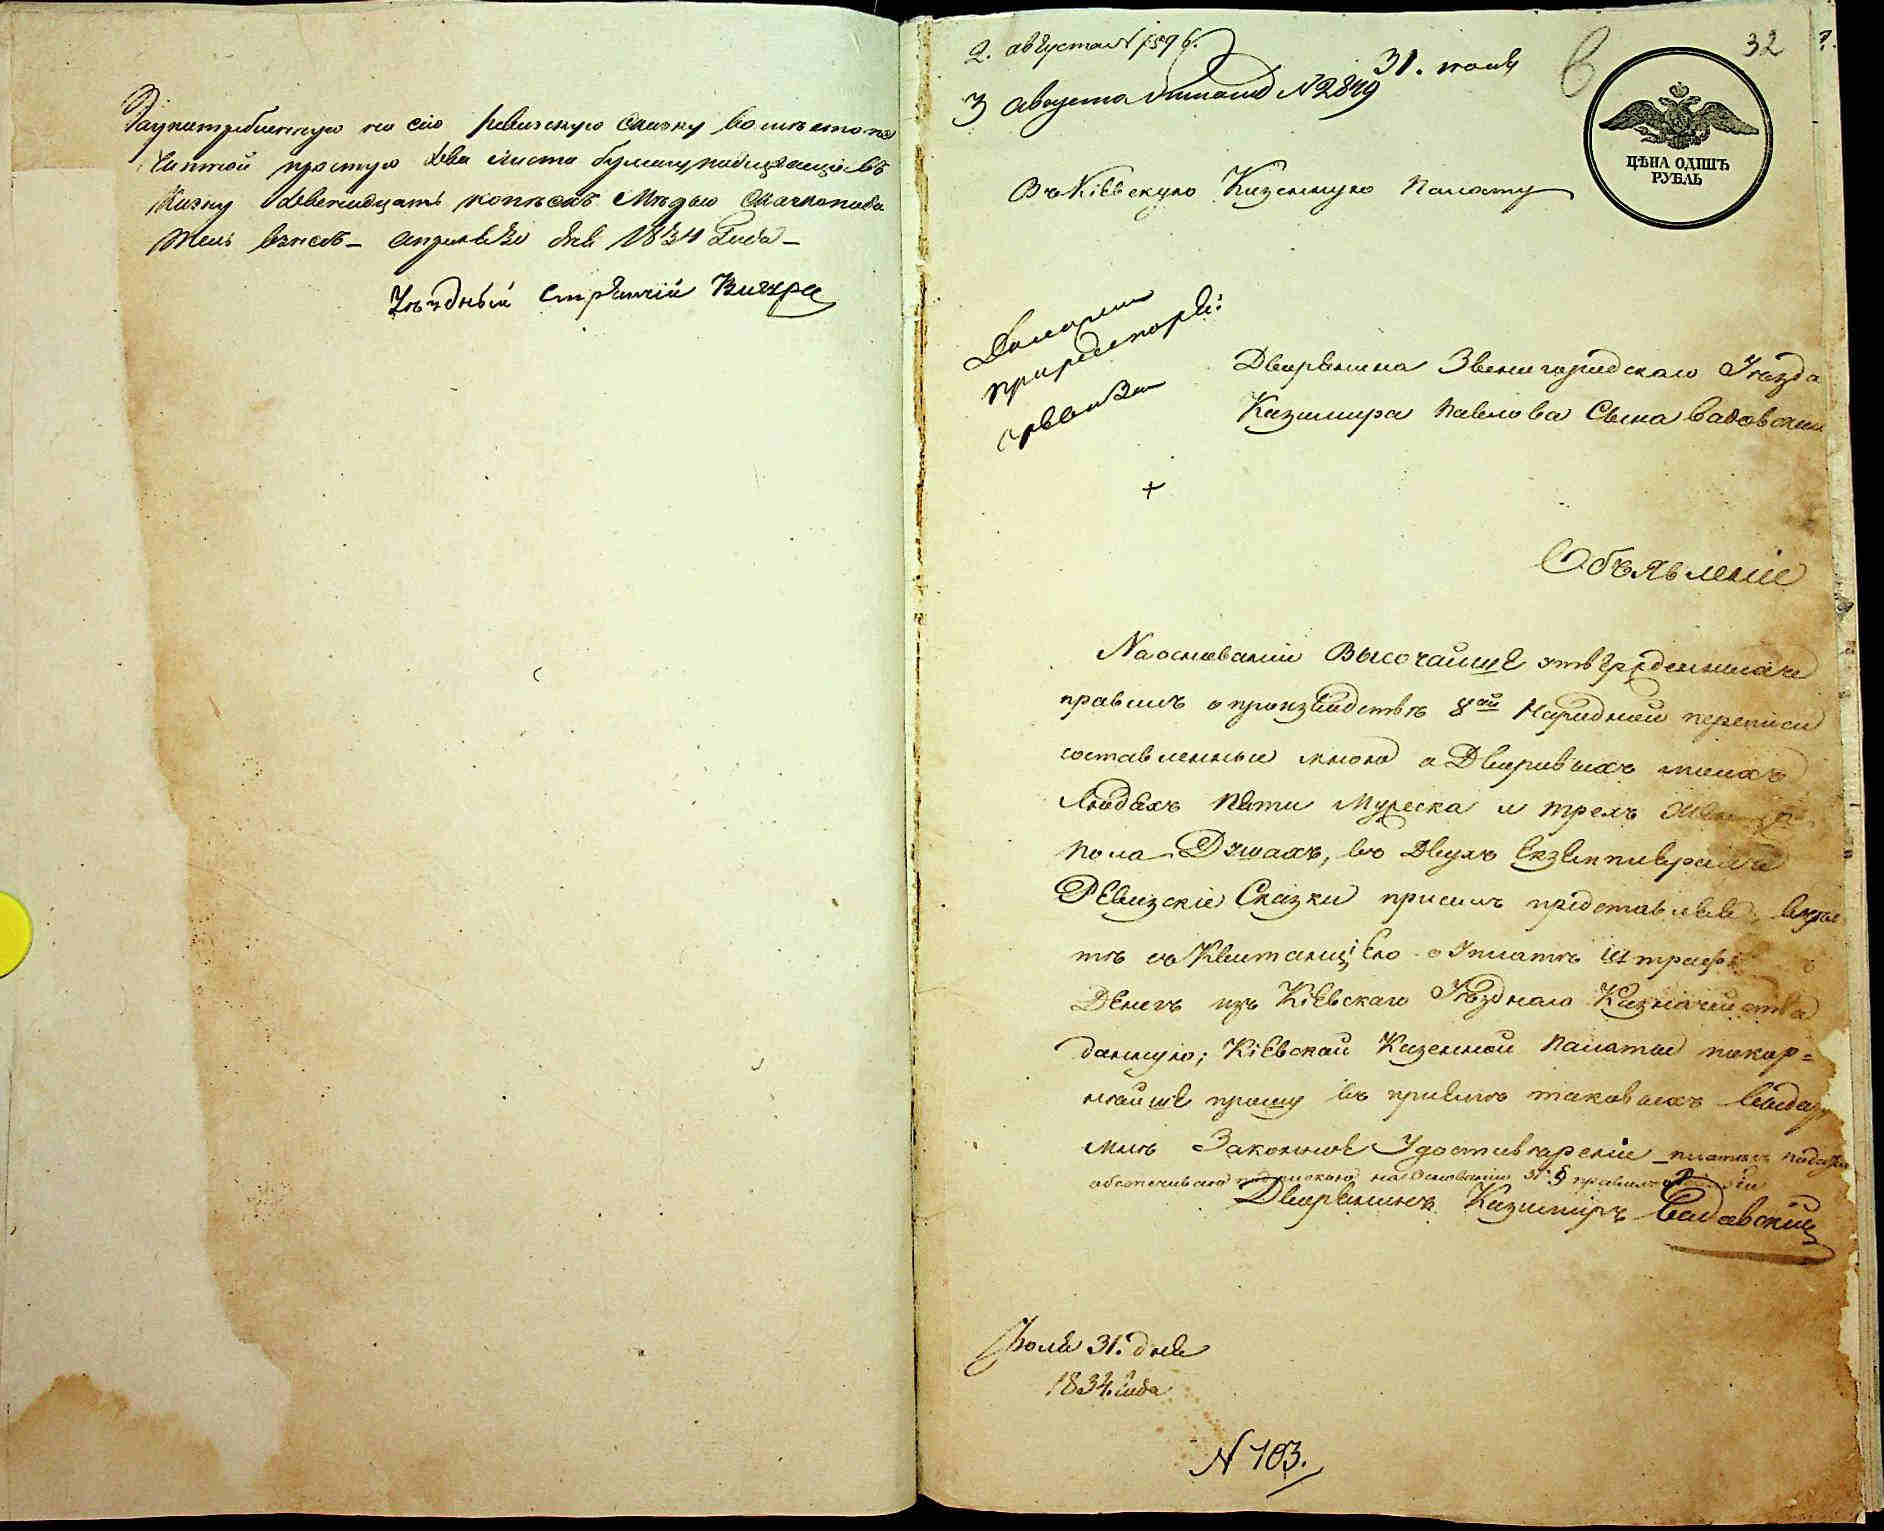 За употребленную на сію ревизскую сказку вместо пе
чатной простую два листа бумагу подлежащіе въ
казну двенадцать копѣекъ мѣдью сказкопода
тель взнесъ – апреля 30 дня 1834 Года –
Уѣздный Стряпчій
2. августа N 1596.
31. іюля
32
3 августа N 2849
ЦѢНА ОДИНЪ
РУБЛЬ
Въ Кіевскую Казенную Палату
Дворянина Звенигородскаго Уѣзда
Казимира Павлова Сына
Объявленіе
На основаніи Высочайше утвержденныхъ
правилъ о произвѣдствѣ 8ой Народной переписи
составленные мною о Дворовыхъ моихъ
Людяхъ пяти Мужеска и трехъ женска
пола Душахъ, въ Двухъ Екземплярахъ
Ревизскіе Сказки присемъ представляя, вмѣс
тѣ съ Квитанціею о Уплатѣ штрафныхъ
Денегъ изъ Кіевскаго Уѣзднаго Казначейства
данную; Кіевской Казенной Палаты покор=
нѣйше прошу въ пріемѣ таковыхъ выдать
мнѣ Законное Удостовѣреніе платежъ податей
обезпечиваю подпискою на Основаніи §
Дворянинъ Казимиръ
Іюля 31. дня
1834. года
N 103.